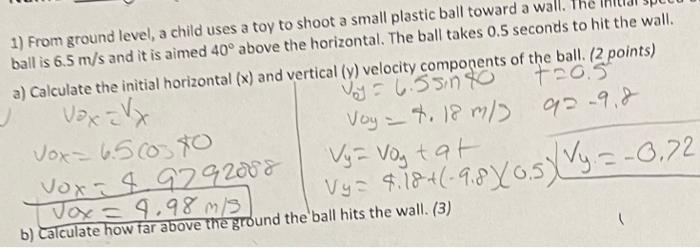 1) From ground level, a child uses a toy to shoot a small plastic ball toward a wall. The initial
ball is 6.5 m/s and it is aimed 40° above the horizontal. The ball takes 0.5 seconds to hit the wall.
a) Calculate the initial horizontal (x) and vertical (y) velocity components of the ball. (2 points)
Vox = Vx
Vox = 6.5 cos 40
Vox = 4.9792888
Vox = 4.98 m/s
Voy = 6.5 sin 40
t = 0.5
Voy = 4.18 m/s
a = -9.8
Vy = Voy + at
Vy = 4.18 + (-9.8)(0.5)
Vy = -0.72
b) Calculate how far above the ground the ball hits the wall. (3)